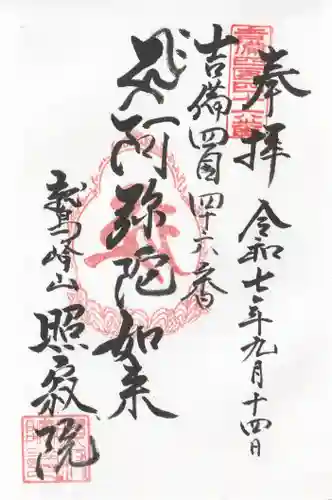 奉拝
令和七年九月十四日
吉備四国四十六番
阿弥陀如来
鷲峰山
照寂院